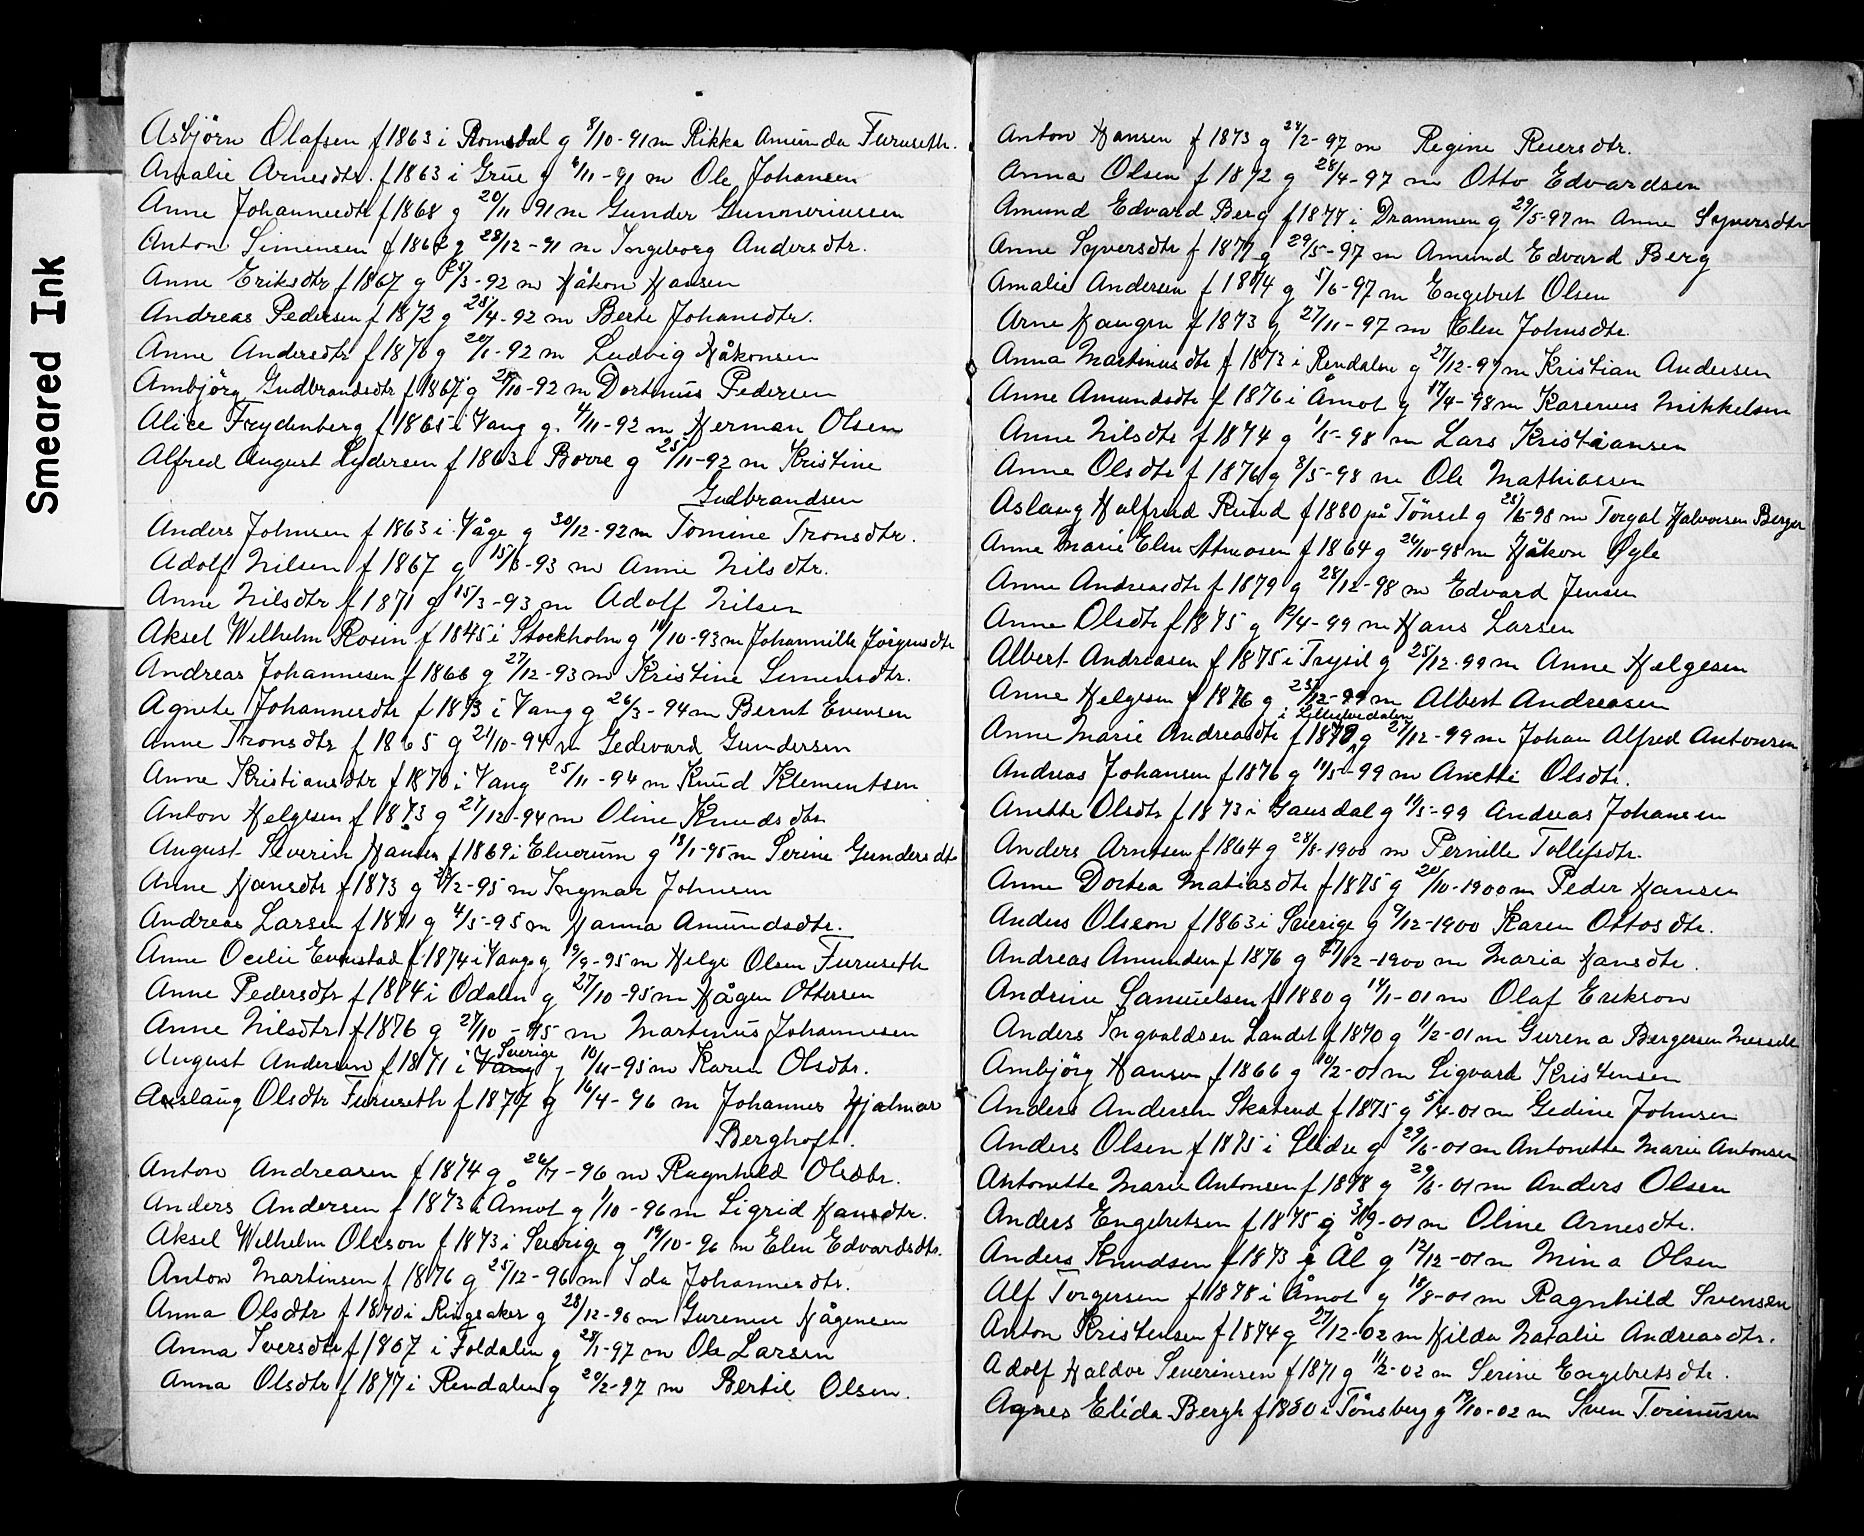 Smeared Ink
Asbjörn Olafsen f 1863 i Romsdal g 8/10-91 m Rikka Amunda Furuseth.
Amalie Arnesdtr. f 1863 i Grue g 6/11-91 m Ole Johansen
Anne Johannesdtr f 1868 g 20/11 91 m Gunder Gunneriussen
Anton Simensen f 1862 g 28/12-91 m Ingeborg Andersdtr.
Anne Eriksdtr f 1867 g 25/3-92 m Håkon Hansen
Andreas Pedersen f 1872 g 25/4-92 m Berte Johansdtr.
Anne Andersdtr f 1876 g 20/1-92 m Ludvig Håkonsen
Ambjörg Gudbrandsdtr f 1867 g /10-92 m Dortinus Pedersen
Alice Frydenberg f 1865 i Vang g. 4/11-92 m Herman Olsen
Alfred August Lydersen f 1863 i Borre g 25/11-92 m Kristine
Gudbrandsen
Anders Johnsen f 1863 i Våge g 30/12-92 m Tomine Tronsdtr.
Adolf Nilsen f 1867 g 15/3-93 m Anne Nilsdtr.
Anne Nilsdtr f 1871 g 15/3-93 m Adolf Nilsen
Aksel Wilhelm Rosin f 1845 i Stockholm g 11/10-93 m Johannille Jörgensdtr
Andreas Johannesen f 1866 g 27/12-93 m Kristine Simensdtr.
Agnete Johannesdtr f 1873 i Vang g 26/3-94 m Bernt Evensen
Anne Tronsdtr f 1865 g 21/10-94 m Gedevard Gundersen
Anne Kristiansdtr f 1870 i Vang 25/11-94 m Knud Klementsen
Anton Helgesen f 1873 g 27/12-94 m Oline Knudsdtr
August Severin Hansen f 1869 i Elverum g 18/1-95 m Serine Gundersdtr
Anne Hansdtr f 1873 g /2-95 m Ingmar Johnsen
Andreas Larsen f 1871 g 4/5-95 m Hanna Amundsdtr.
Anne Oceilie Evenstad f 1874 i Vang g 19/9-95 m Helge Olsen Furuseth
Anne Pedersdtr f 1874 i Odalen g 27/10-95 m Hågen Ottersen
Anne Nilsdtr f 1876 g 27/10-95 m Martinus Johannesen
August Andersen f 1871 i Vang Sverige g 10/11-95 m Karen Olsdtr.
Aslaug Olsdtr Furuseth f 1877 g 16/4-96 m Johannes Hjalmar
Berghoft.
Anton Andreasen f 1874 g 26/7-96 m Ragnhild Olsdtr.
Anders Andersen f 1873 i Åmot g 1/10-96 m Sigrid Hansdtr.
Aksel Wilhelm Olsson f 1873 i Sverige g 19/10-96 m Elen Edvardsdtr.
Anton Martinsen f 1876 g 25/12-96 m Ida Johannesdtr.
Anna Olsdtr f 1870 i Ringsaker g 28/12-96 m Gurenius Hågensen
Anna Iversdtr f 1867 i Foldalen g 28/1-97 m Ole Larsen
Anna Olsdtr f 1877 i Rendalen g 20/2-97 m Bertil Olsen.
Anton Hansen f 1873 g 24/2-97 m Regine Reiersdtr.
Anna Olsen f 1872 g 28/4-97 m Otto Edvardsen
Amund Edvard Berg f 1877 i Drammen g 29/5-97 m Anne Syversdtr
Anne Syversdtr f 1877 g 29/5-97 m Amund Edvard Berg
Amalie Andersen f 1874 g 5/6-97 m Engebret Olsen
Arne Haugen f 1873 g 27/11-97 m Elen Johnsdtr.
Anna Martinusdtr f 1873 i Rendalen g 27/12-97 m Kristian Andersen
Anne Amundsdtr f 1876 i Åmot g 17/4-98 m Karenus Mikkelsen
Anne Nilsdtr f 1874 g 1/5-98 m Lars Kristiansen
Anne Olsdtr f 1876 g 8/5-98 m Ole Mathiassen
Aslaug Halfrid Rund f 1880 på Tönset g 25/6-98 m Torgal Halvorsen Berger
Anne Marie Elen f 1864 g 26/10-98 m Håkon Øgle
Anne Andreasdtr f 1879 g 28/12-98 m Edvard Jensen
Anne Olsdtr f 1875 g 12/4-99 m Hans Larsen
Albert Andreasen f 1875 i Trysil g 25/12-99 m Anne Helgesen
Anne Helgesen f 1876 g 25/12-99 m Albert Andreasen
Anne Marie Andreasdtr f 1870 i Lilleelvedalen g 27/12-99 m Johan Alfred Antonsen
Andreas Johansen f 1876 g 11/5-99 m Anette Olsdtr.
Anette Olsdtr f 1873 i Gausdal g 11/5-99 Andreas Johansen
Anders Arntsen f 1864 g 28/8-1900 m Pernille Tollefsdtr.
Anne Dortea Matiasdtr f 1875 g 20/10-1900 m Peder Hansen
Anders Olsson f 1863 i Sverige g 9/12-1900 Karen Ottosdtr.
Andreas Amundsen f 1876 g 27/12-1900 m Maria Hansdtr.
Andrine Samuelsen f 1880 g 14/1-01 m Olaf Erikson
Anders Ingvaldsen Landet f 1870 g 11/2-01 m Gurena Bergersen Messelt
Ambjörg Hansen f 1866 g 10/2-01 m Sigvard Kristensen
Anders Andersen Skaterud f 1875 g 5/4-01 m Gedine Johnsen
Anders Olsen f 1875 i Slidre g 29/6-01 m Antonette Marie Antonsen
Antonette Marie Antonsen f 1878 g 29/6-01 m Anders Olsen
Anders Engebretsen f 1875 g 3/9-01 m Oline Arnesdtr.
Anders Knudsen f 1873 i Ål g 12/12-01 m Mina Olsen
Alf Torgersen f 1878 i Åmot g 18/8-01 m Ragnhild Svensen
Anton Kristensen f 1874 g 27/12-02 m Hilda Natalie Andreasdtr.
Adolf Haldor Severinsen f 1871 g 11/2-02 m Serine Engebretsdtr.
Agnes Elida Bergh f 1880 i Tönsberg g 19/10-02 m Sven Torinusen